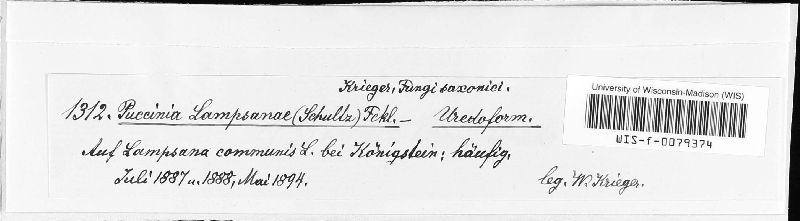 Krieger, Fungi saxonici.
1312. Puccinia Lampsanae (Schultz) Fckl. — Uredoform.
Auf Lampsana communis L. bei Königstein; häufig,
Juli 1887 u. 1888, Mai 1894.
leg. W. Krieger.
University of Wisconsin-Madison (WIS)
WIS-f-0079374